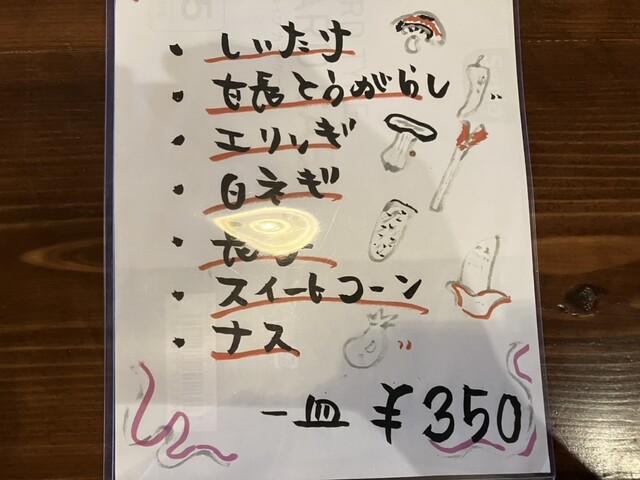 しいたけ
甘長とうがらし
エリンギ
白ネギ
長芋
スイートコーン
ナス
一皿 ¥350